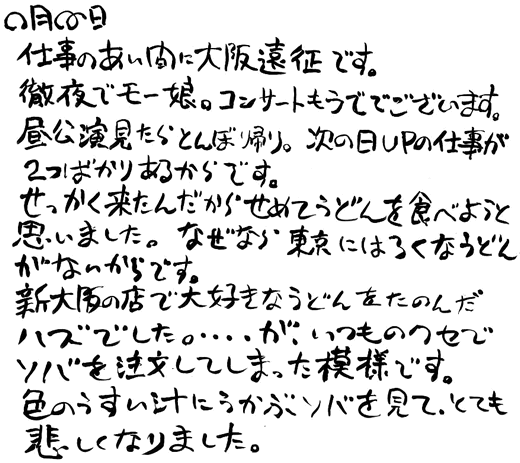 〇月〇〇日
仕事のあい間に大阪遠征です。
徹夜でモー娘。コンサートもうででございます。
昼公演見たらとんぼ帰り。次の日UPの仕事が
2つばかりあるからです。
せっかく来たんだからせめてうどんを食べようと
思いました。なぜなら東京にはろくなうどん
がないからです。
新大阪の店で大好きなうどんをたのんだ
ハズでした。‥‥が、いつものクセで
ソバを注文してしまった模様です。
色のうすい汁にうかぶソバを見て、とても
悲しくなりました。